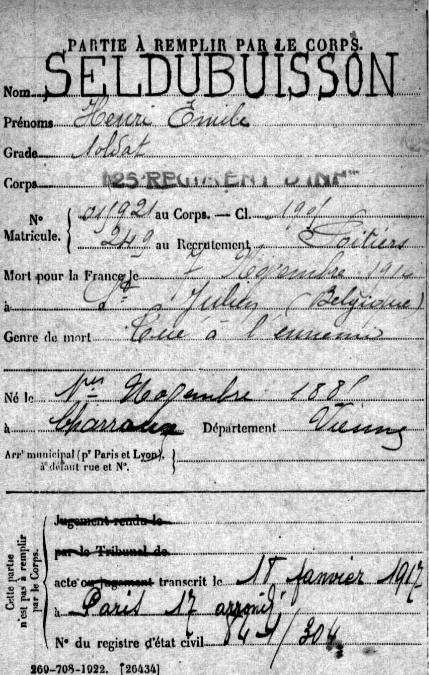 PARTIE À REMPLIR PAR LE CORPS.
Nom SELDUBUISSON
Prénoms Henri Emile
Grade Soldat
Corps 125 REGIMENT D'INFIE
N° Matricule. 01921 au Corps. — Cl. 1901
249 au Recrutement Poitiers
Mort pour la France le 7 Novembre 1914
à St Julien (Belgique)
Genre de mort Tué à l'ennemi
Né le 1er Novembre 1881
à Charroux Département Vienne
Arrt municipal (pr Paris et Lyon),
à défaut rue et N°.
Cette partie n'est pas à remplir par le Corps.
Jugement rendu le
par le Tribunal de
acte ou jugement transcrit le 15 janvier 1917
à Paris 17 arrondt
N° du registre d'état civil / 304
269-708-1922. [26434]